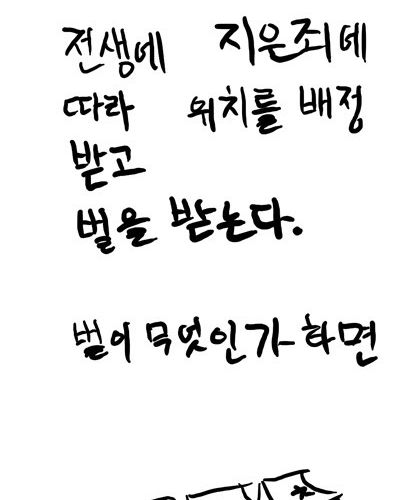 전생에 지은죄에
따라 위치를 배정
받고
벌을 받는다.
벌이 무엇인가하면